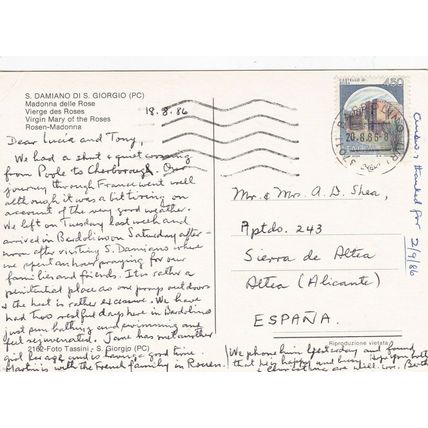 S. DAMIANO DI S. GIORGIO (PC)
Madonna delle Rose
Vierge des Roses
Virgin Mary of the Roses
Rosen-Madonna
18.8.86
Dear Lucia and Tony,
We had a short & quiet crossing
from Poole to Cherbourg. Our
journey through France went well
although it was a bit tiring on
account of the very good weather.
We left on Tuesday last week and
arrived in Bardolino on Saturday after-
noon after visiting S. Damiano where
we spent an hour praying for our
families and friends. It is rather a
penitential place as one prays outdoors
& the heat is rather excessive. We have
had two restful days here in Bardolino
just sun bathing and swimming and
feel rejuvenated. Jane has met another
girl her age and is having a good time.
Martin is with the French family in Rouen.
We phone him yesterday and found
that he is happy and busy. Hope you both
2162-Foto Tassini - S. Giorgio (PC)
Riproduzione vietata
450
20.8.86-8
Mr. & Mrs. A. D. Shea,
Aptdo. 243
Sierra de Altea
Altea (Alicante)
ESPAÑA.
thanked for
2/9/86